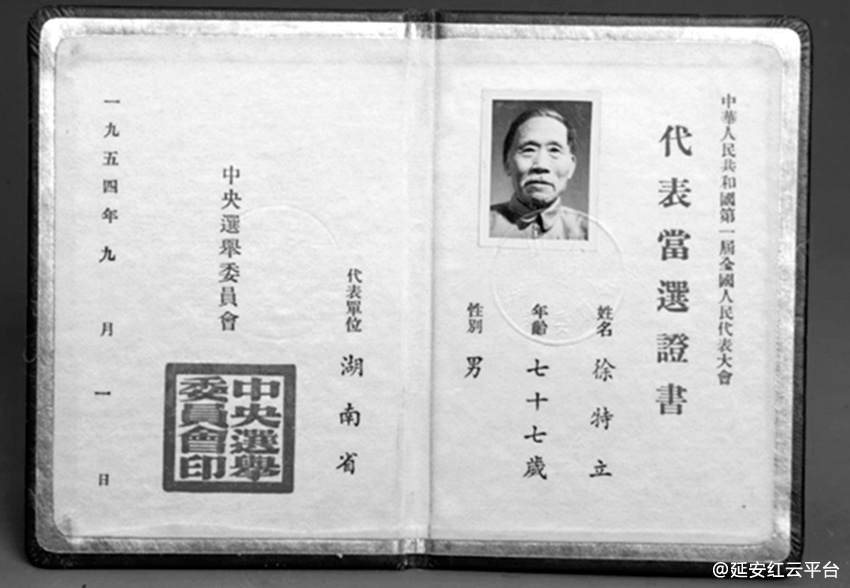 中華人民共和國第一屆全國人民代表大會
代表當選證書
姓名 徐特立
年齡 七十七歲
性別 男
代表單位 湖南省
中央選舉委員會
中央選舉委員會印
一九五四年九月一日
@延安红云平台